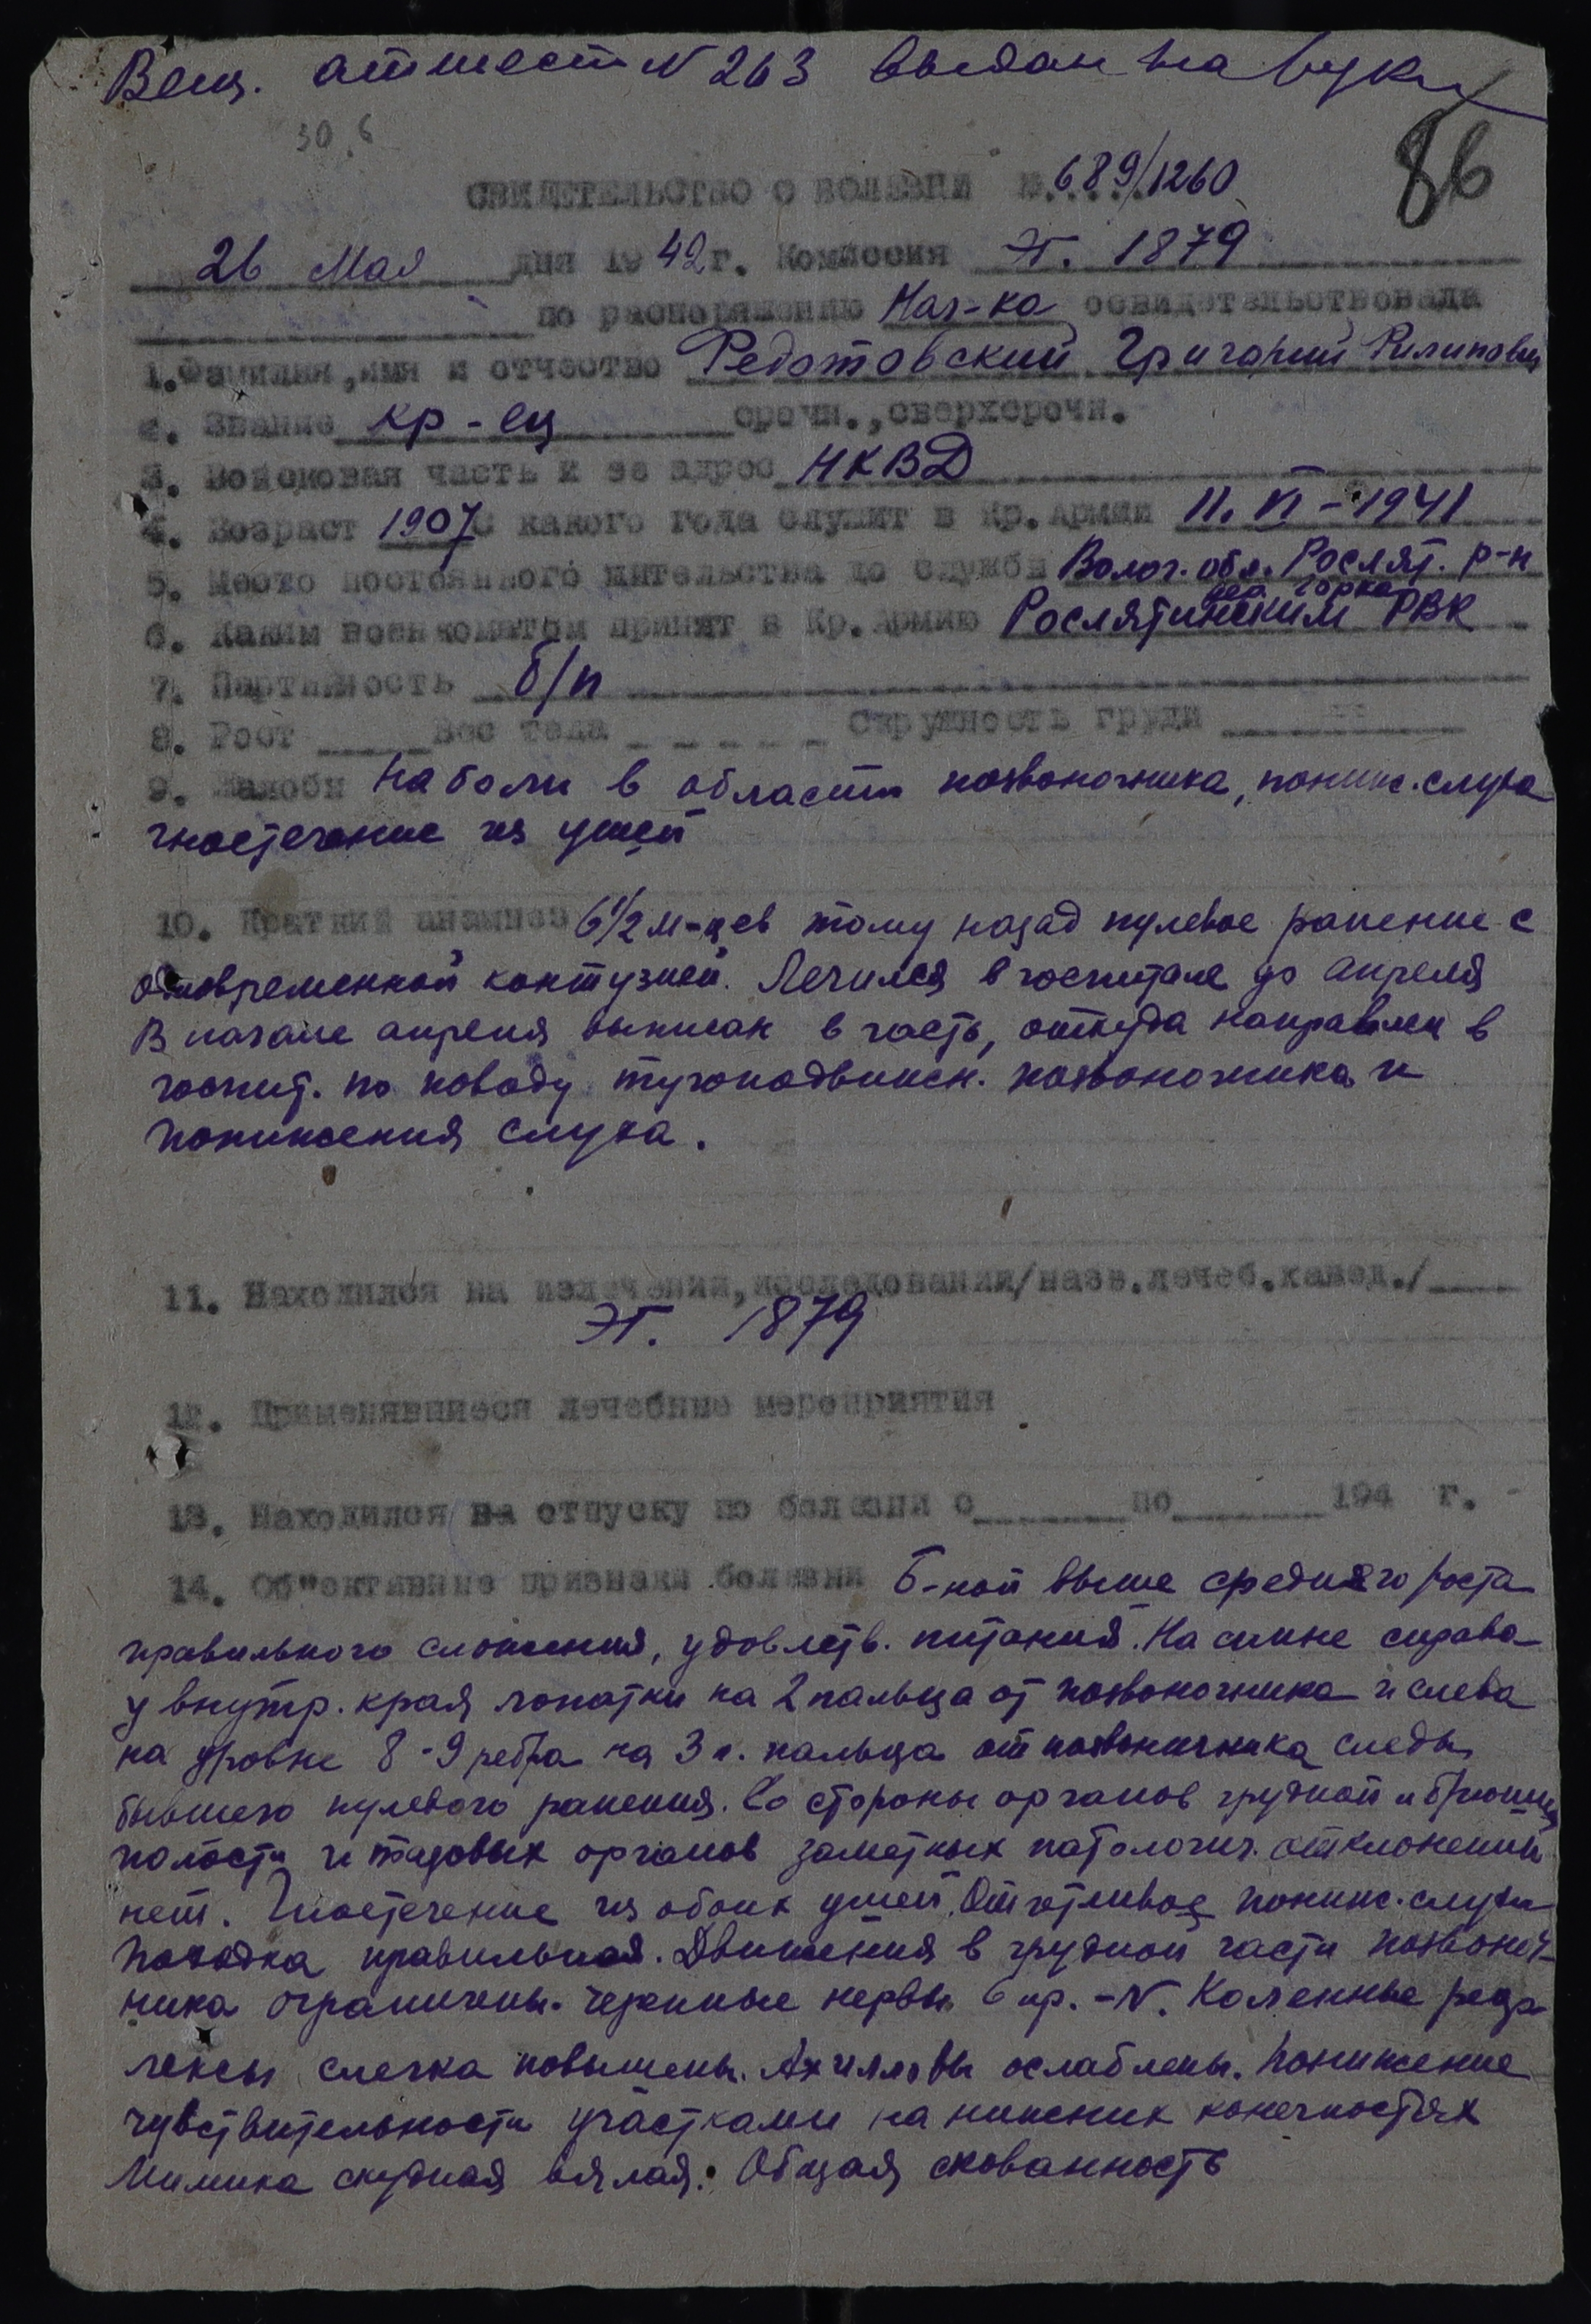 Вещ. аттест N 263 выдан на руки
30.6
86
СВИДЕТЕЛЬСТВО О БОЛЕЗНИ №.....689/1260
26 Мая дня 1942 г. Комиссия ЭГ. 1879
по распоряжению Нач-ка освидетельствовала
1. Фамилия, имя и отчество Федотовский Григорий Филипович
2. Звание кр-ец срочн., сверхсрочн.
3. Войсковая часть и ее адрес НКВД
4. Возраст 1907 С какого года служит в Кр. Армии 11. VI - 1941
5. Место постоянного жительства до службы Волог. обл. Рослят. р-н
дер. Горка
6. Каким военкоматом принят в Кр. Армию Рослятинским РВК
7. Партийность б/п
8. Рост Вес тела Окружность груди
9. Жалобы на боли в области позвоночника, пониж. слуха
гноетечение из ушей
10. Краткий анамнез 6 1/2 м-цев тому назад пулевое ранение с
одновременной контузией. Лечился в госпитале до апреля
В начале апреля выписан в часть, откуда направлен в
госпит. по поводу тугоподвижн. позвоночника и
понижения слуха.
11. Находился на излечении, исследовании/назв. лечеб. завед./
ЭГ. 1879
12. Применявшиеся лечебные мероприятия
13. Находился на отпуску по болезни с по 194 г.
14. Об"ективные признаки болезни Б-ной выше среднего роста
правильного сложения, удовлетв. питания. На спине справа
у внутр. края лопатки на 2 пальца от позвоночника и слева
на уровне 8-9 ребра на 3 п. пальца от позвоночника следы
бывшего пулевого ранения. Со стороны органов грудной и брюшной
полости и тазовых органов заметных патологич. отклонений
нет. Гноетечение из обоих ушей. Отчетливое пониж. слуха
Походка правильная. Движения в грудной части позвоноч-
ника ограничены. Черепные нервы в пр. - N. Коленные реф-
лексы слегка повышены. Ахилловы ослаблены. Понижение
чувствительности участками на нижних конечностях
Мимика скудная вялая. Общая скованность